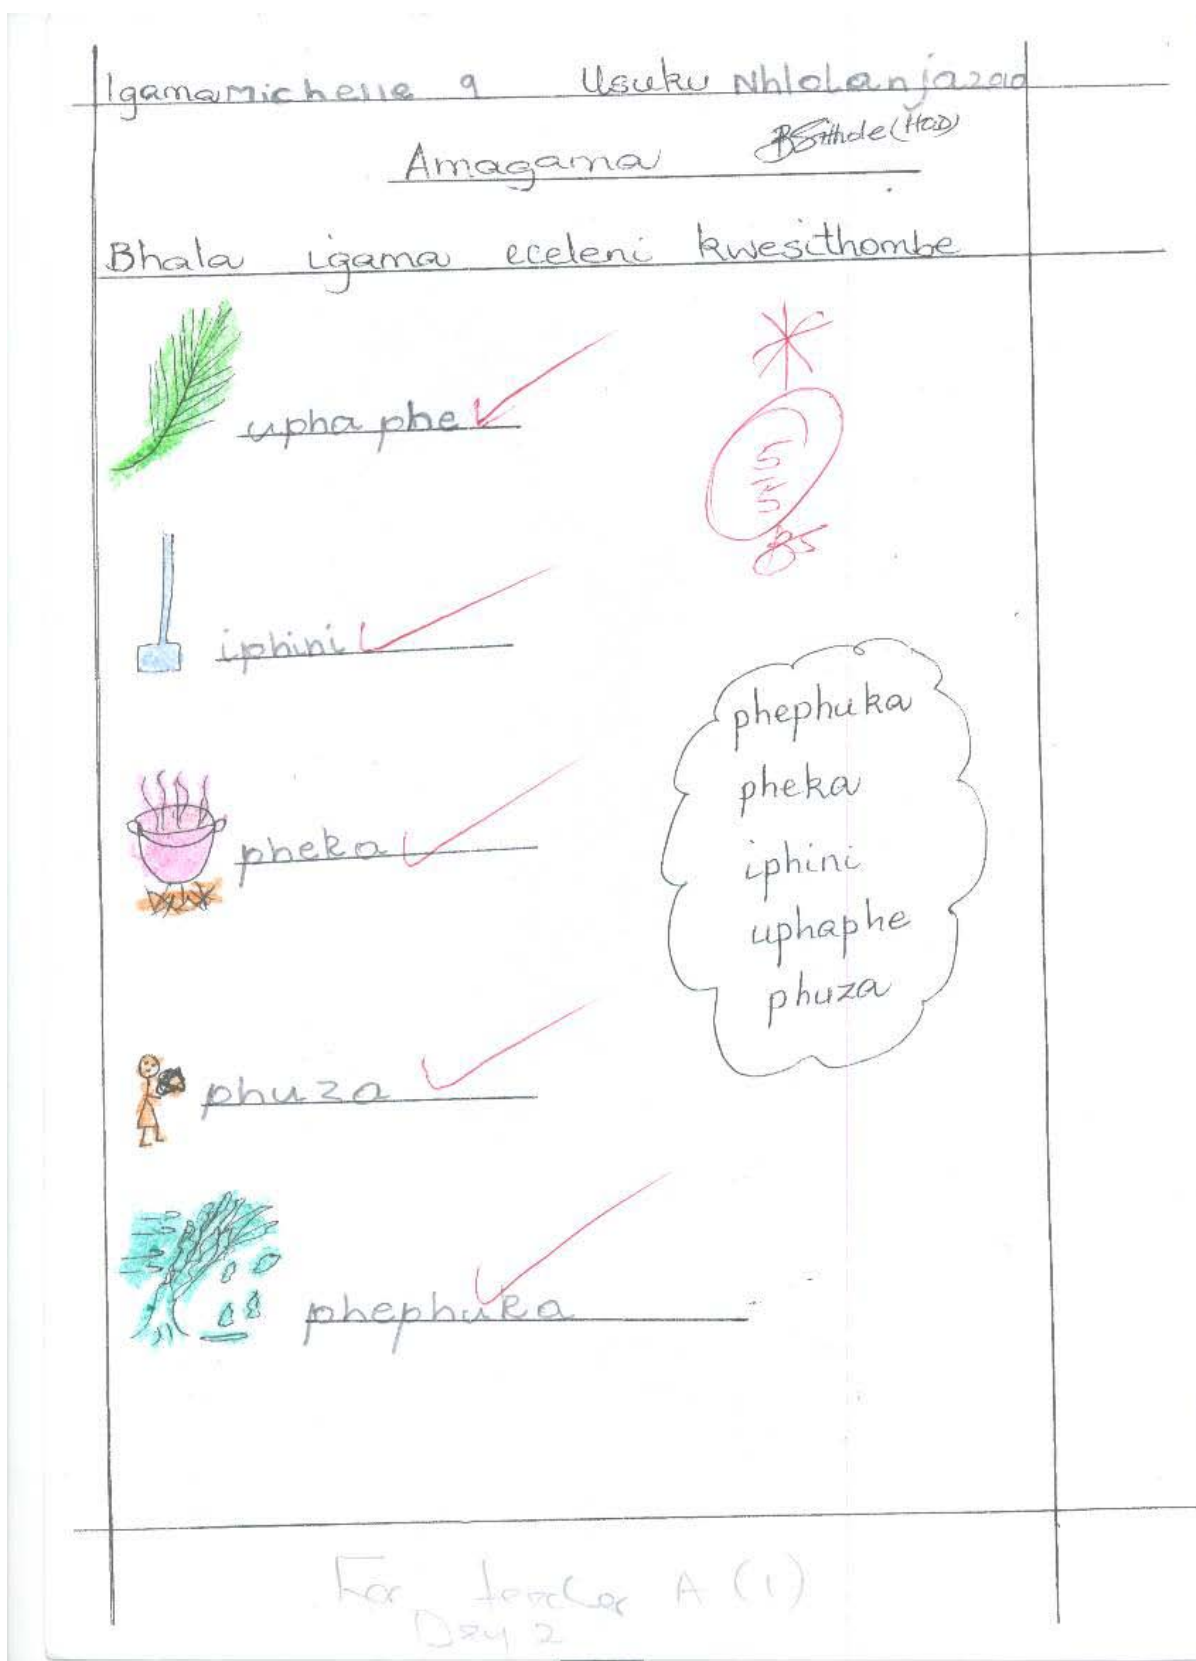 Igama Michelle 9 Usuku Nhlolanja 2010
BSithole (HOD)
Amagama
Bhala igama eceleni kwesithombe
uphaphe
5
5
BS
iphini
phephuka
pheka
iphini
uphaphe
phuza
pheka
phuza
phephuka
For teacher A (1)
Day 2